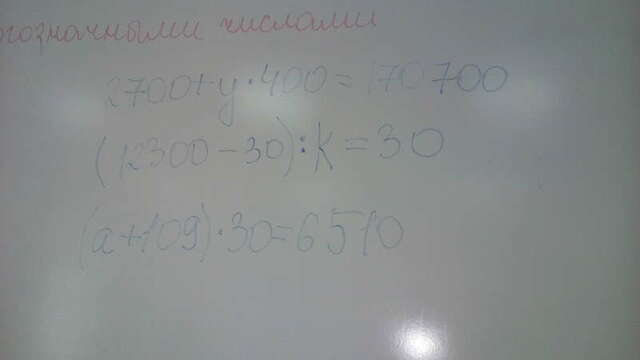 огозначными числами
2700+y·400=170 700
(12300-30):k=30
(a+109)·30=6510